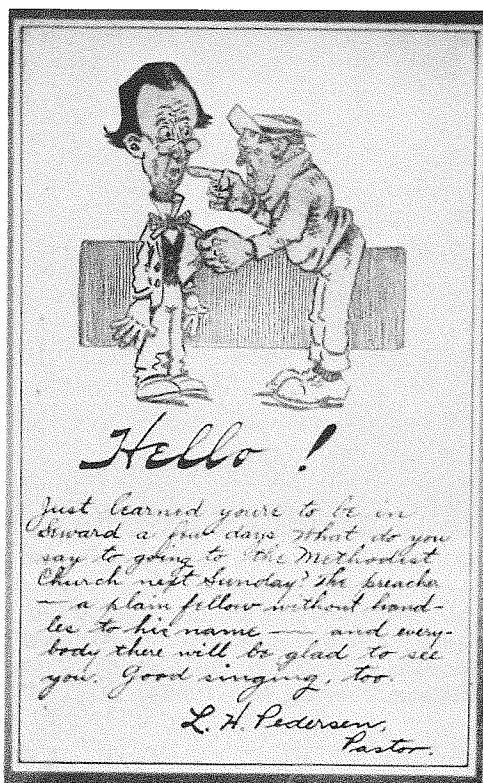 Hello!
Just learned youre to be in
Seward a few days What do you
say to going to the Methodist
Church next Sunday? The preacher
— a plain fellow without hand-
les to his name — and every-
body there will be glad to see
you. Good singing, too.
L. H. Pedersen,
Pastor.